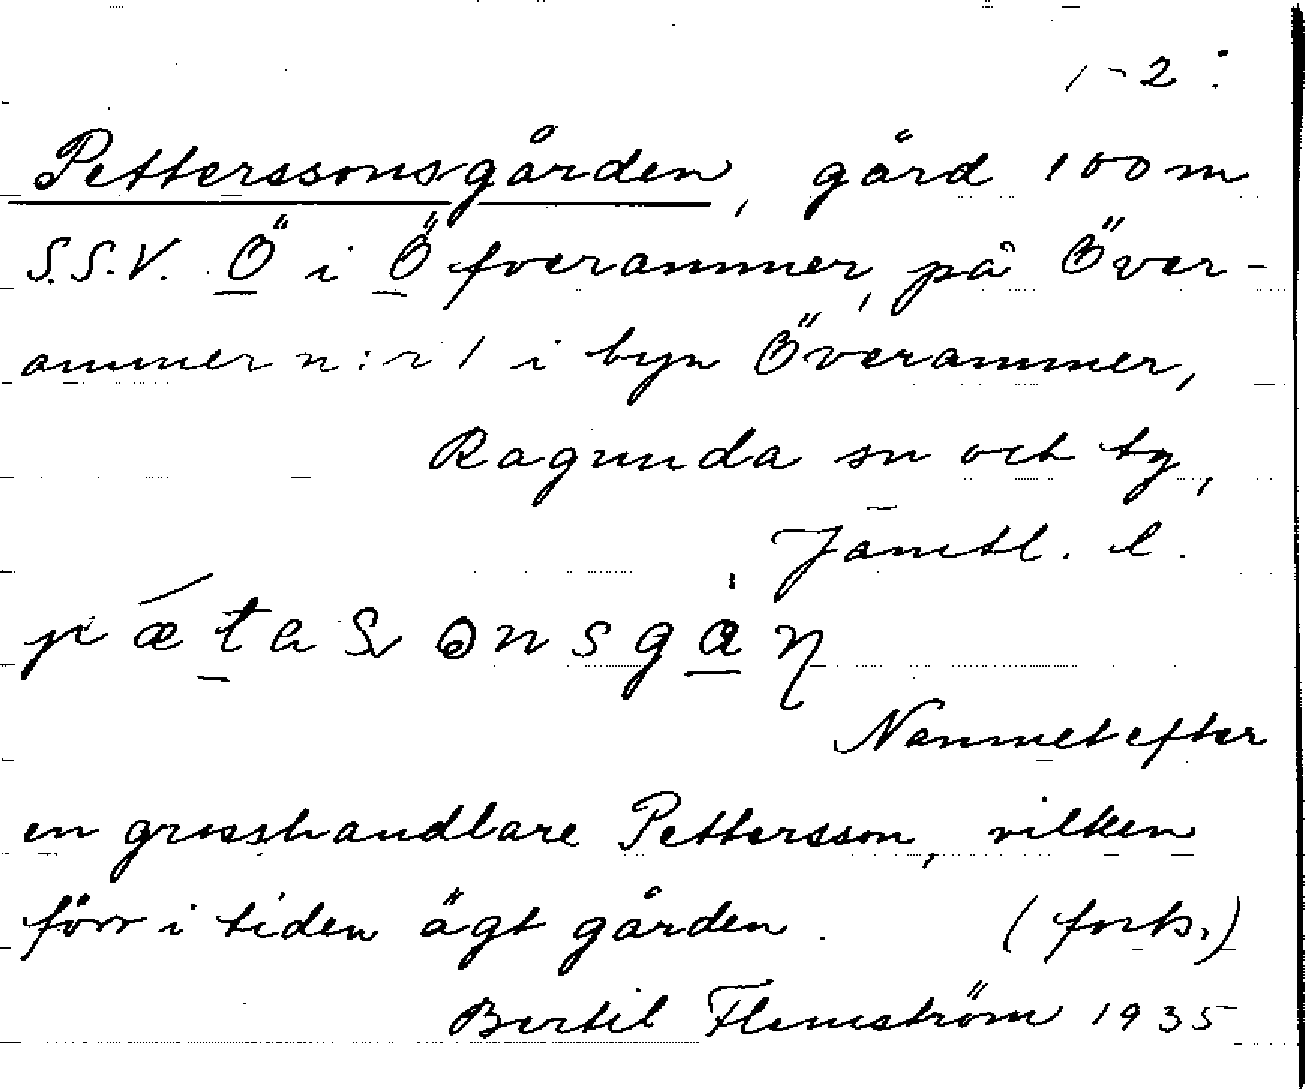 1-2:
Petterssonsgården, gård 100 m
S.S.V. Ö i Öfverammer, på Över-
ammer n:r 1 i byn Överammer,
Ragunda sn och tg,
Jämtl. l.
Namnet efter
en grosshandlare Pettersson, vilken
förr i tiden ägt gården. (forts.)
Bertil Flemström 1935